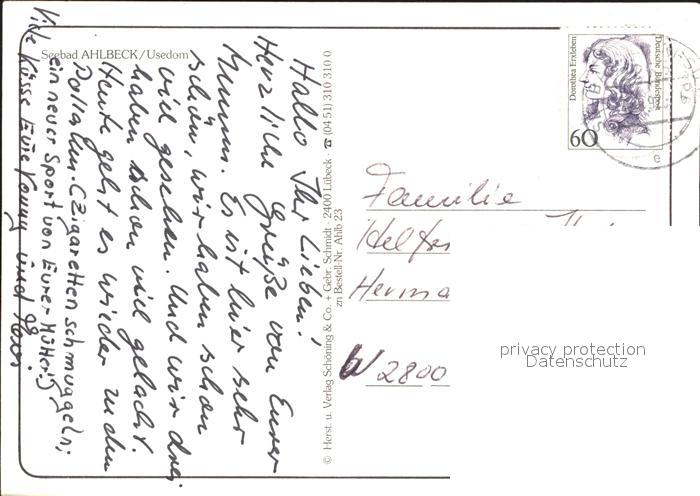 Seebad AHLBECK/Usedom
Hallo Ihr Lieben!
Herzliche Grüße von Eurer
Mumm. Es ist hier sehr
schön, wir haben schon
viel gesehen. Und wir drei
haben schon viel gelacht.
Heute geht es wieder zu den
Pollaken. (Zigaretten schmuggeln;
ein neuer Sport von Eurer Mutter)
Viele Küsse Eure und
© Herst. u. Verlag Schöning & Co. + Gebr. Schmidt · 2400 Lübeck · ☎ (04 51) 310 310 0
zn Bestell-Nr. Ahlb 23
Dorothea Erxleben
Deutsche Bundespost
60
e
Familie
Herma
W 2800
privacy protection
Datenschutz